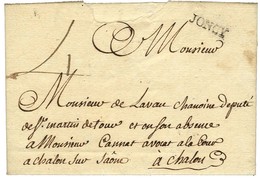 JONCY
Monsieur
Monsieur de Lavau Chanoine député
de St. martin de tours et en son absence
a Monsieur Cannet avocat a la cour
a chalon sur Saône à chalon